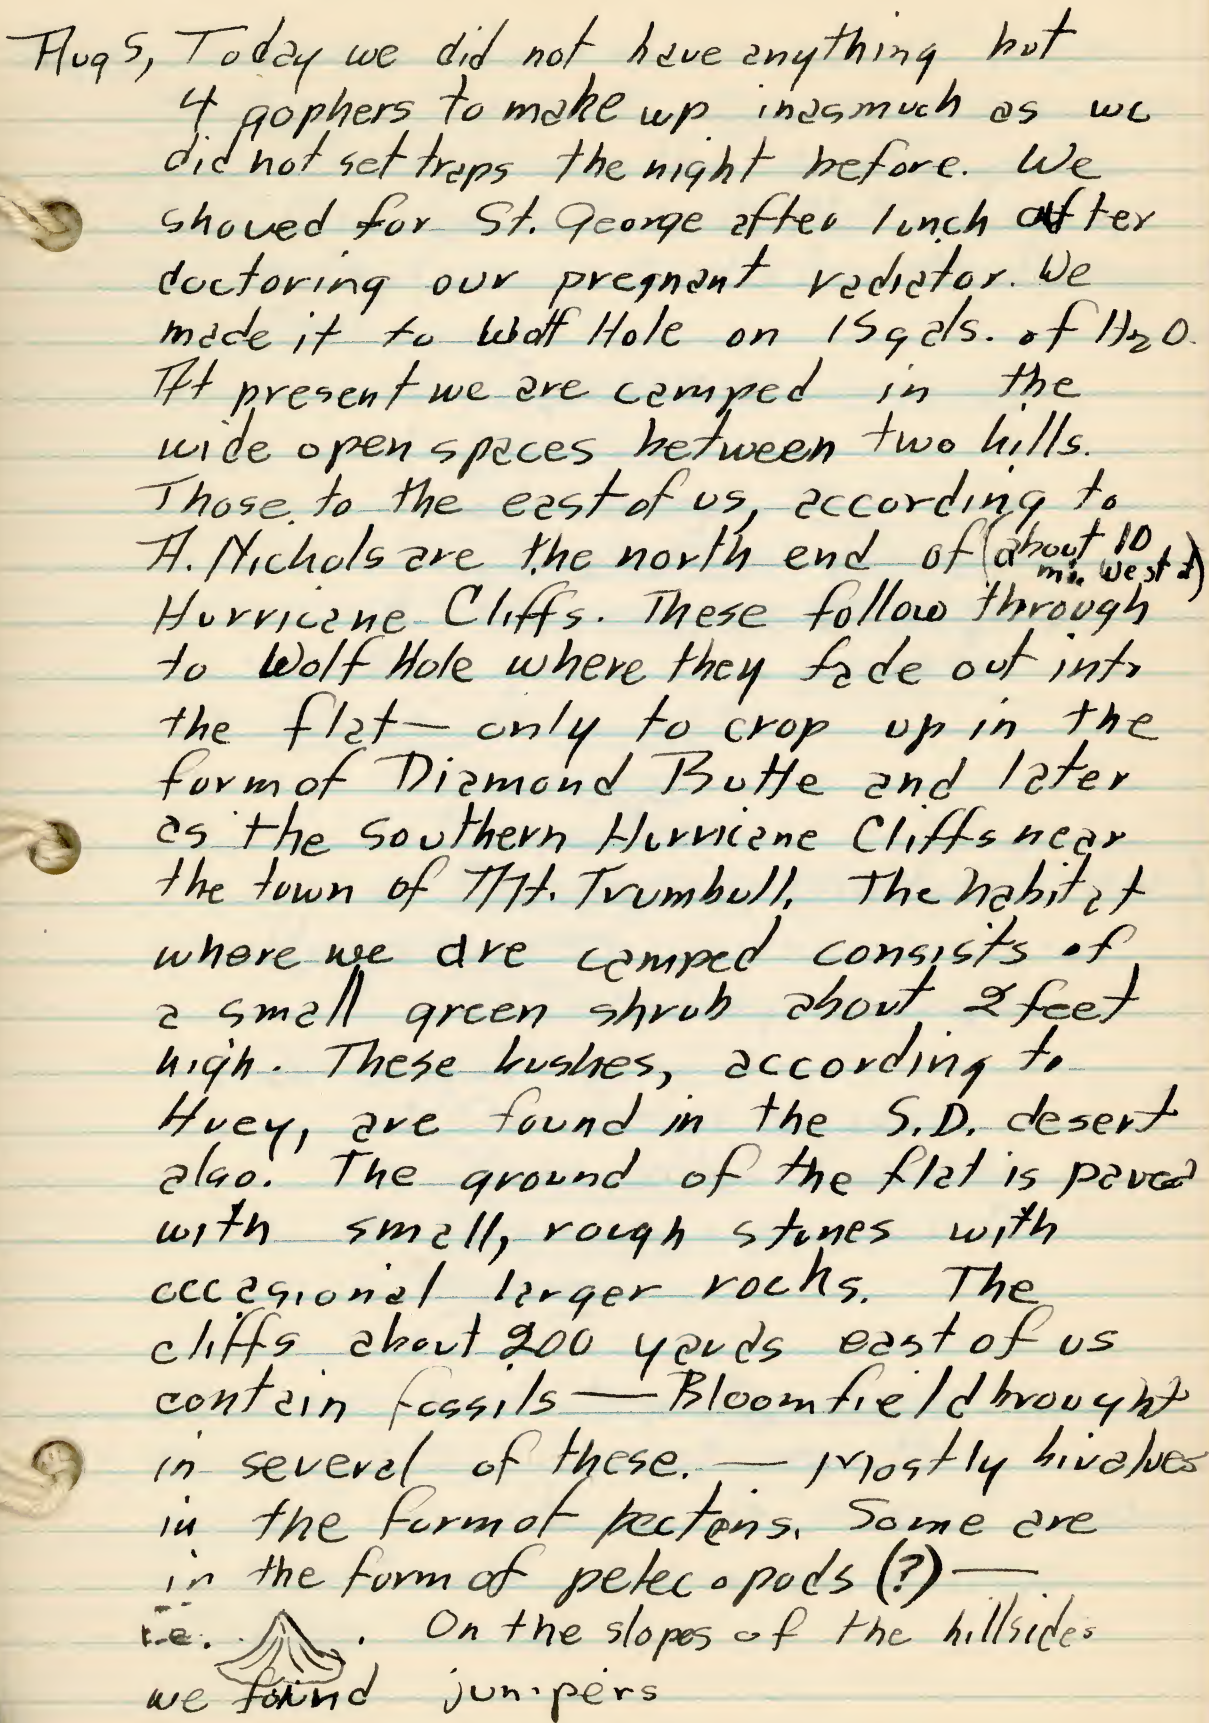 Aug 5, Today we did not have anything but
4 gophers to make up inasmuch as we
did not set traps the night before. We
shoved for St. George after lunch after
doctoring our pregnant radiator. We
made it to Wolf Hole on 15 gals. of H2O.
At present we are camped in the
wide open spaces between two hills.
Those to the east of us, according to
A. Nichols are the north end of (about 10
mi. west)
Hurricane Cliffs. These follow through
to Wolf Hole where they fade out into
the flat — only to crop up in the
form of Diamond Butte and later
as the southern Hurricane Cliffs near
the town of Mt. Trumbull. The habitat
where we are camped consists of
a small green shrub about 2 feet
high. These bushes, according to
Huey, are found in the S.D. desert
also. The ground of the flat is paved
with small, rough stones with
occasional larger rocks. The
cliffs about 200 yards east of us
contain fossils — Bloomfield brought
in several of these. — Mostly bivalves
in the form of pectens. Some are
in the form of pelecopods (?) —
i.e. . On the slopes of the hillsides
we found junipers